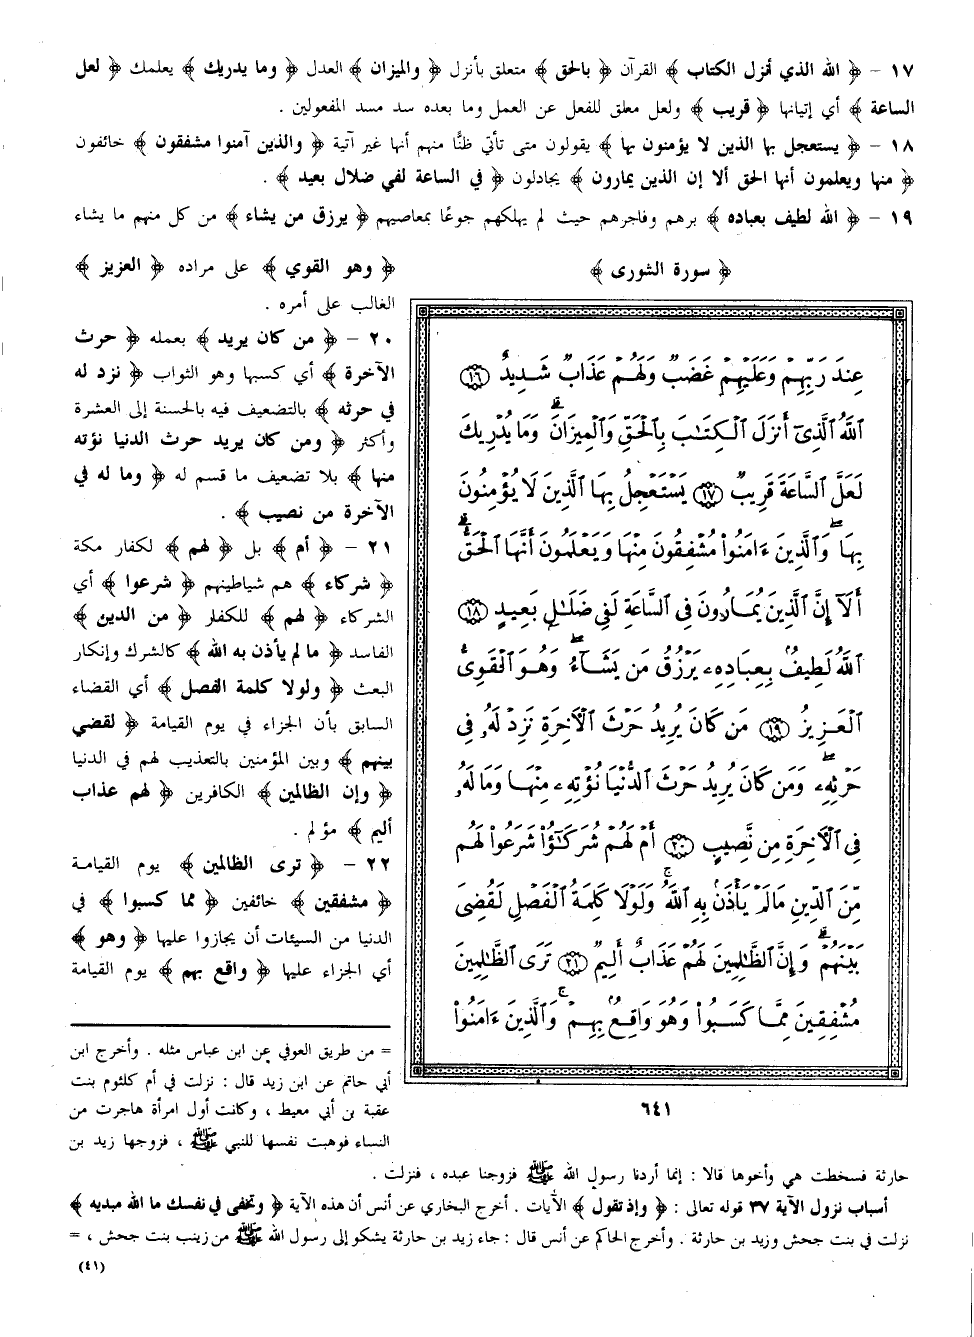 ١٧ - ﴿ الله الذي أنزل الكتاب ﴾ القرآن ﴿ بالحق ﴾ متعلق بأنزل ﴿ والميزان ﴾ العدل ﴿ وما يدريك ﴾ يعلمك ﴿ لعل
الساعة ﴾ أي إتيانها ﴿ قريب ﴾ ولعل معلق للفعل عن العمل وما بعده سد مسد المفعولين .
١٨ - ﴿ يستعجل بها الذين لا يؤمنون بها ﴾ يقولون متى تأتي ظنًّا منهم أنها غير آتية ﴿ والذين آمنوا مشفقون ﴾ خائفون
﴿ منها ويعلمون أنها الحق ألا إن الذين يمارون ﴾ يجادلون ﴿ في الساعة لفي ضلال بعيد ﴾ .
١٩ - ﴿ الله لطيف بعباده ﴾ برهم وفاجرهم حيث لم يهلكهم جوعًا بمعاصيهم ﴿ يرزق من يشاء ﴾ من كل منهم ما يشاء
﴿ سورة الشورى ﴾
عِندَ رَبِّهِمْ وَعَلَيْهِمْ غَضَبٌ وَلَهُمْ عَذَابٌ شَدِيدٌ ١٦
ٱللَّهُ ٱلَّذِىٓ أَنزَلَ ٱلْكِتَٰبَ بِٱلْحَقِّ وَٱلْمِيزَانَ وَمَا يُدْرِيكَ
لَعَلَّ ٱلسَّاعَةَ قَرِيبٌ ١٧ يَسْتَعْجِلُ بِهَا ٱلَّذِينَ لَا يُؤْمِنُونَ
بِهَا وَٱلَّذِينَ ءَامَنُوا۟ مُشْفِقُونَ مِنْهَا وَيَعْلَمُونَ أَنَّهَا ٱلْحَقُّ
أَلَآ إِنَّ ٱلَّذِينَ يُمَارُونَ فِى ٱلسَّاعَةِ لَفِى ضَلَٰلٍۭ بَعِيدٍ ١٨
ٱللَّهُ لَطِيفٌۢ بِعِبَادِهِۦ يَرْزُقُ مَن يَشَآءُ وَهُوَ ٱلْقَوِىُّ
ٱلْعَزِيزُ ١٩ مَن كَانَ يُرِيدُ حَرْثَ ٱلْءَاخِرَةِ نَزِدْ لَهُۥ فِى
حَرْثِهِۦ وَمَن كَانَ يُرِيدُ حَرْثَ ٱلدُّنْيَا نُؤْتِهِۦ مِنْهَا وَمَا لَهُۥ
فِى ٱلْءَاخِرَةِ مِن نَّصِيبٍ ٢٠ أَمْ لَهُمْ شُرَكَٰٓؤُا۟ شَرَعُوا۟ لَهُم
مِّنَ ٱلدِّينِ مَا لَمْ يَأْذَنۢ بِهِ ٱللَّهُ وَلَوْلَا كَلِمَةُ ٱلْفَصْلِ لَقُضِىَ
بَيْنَهُمْ وَإِنَّ ٱلظَّٰلِمِينَ لَهُمْ عَذَابٌ أَلِيمٌ ٢١ تَرَى ٱلظَّٰلِمِينَ
مُشْفِقِينَ مِمَّا كَسَبُوا۟ وَهُوَ وَاقِعٌۢ بِهِمْ وَٱلَّذِينَ ءَامَنُوا۟
٦٤١
﴿ وهو القوي ﴾ على مراده ﴿ العزيز ﴾
الغالب على أمره .
٢٠ - ﴿ من كان يريد ﴾ بعمله ﴿ حرث
الآخرة ﴾ أي كسبها وهو الثواب ﴿ نزد له
في حرثه ﴾ بالتضعيف فيه بالحسنة إلى العشرة
وأكثر ﴿ ومن كان يريد حرث الدنيا نؤته
منها ﴾ بلا تضعيف ما قسم له ﴿ وما له في
الآخرة من نصيب ﴾ .
٢١ - ﴿ أم ﴾ بل ﴿ لهم ﴾ لكفار مكة
﴿ شركاء ﴾ هم شياطينهم ﴿ شرعوا ﴾ أي
الشركاء ﴿ لهم ﴾ للكفار ﴿ من الدين ﴾
الفاسد ﴿ ما لم يأذن به الله ﴾ كالشرك وإنكار
البعث ﴿ ولولا كلمة الفصل ﴾ أي القضاء
السابق بأن الجزاء في يوم القيامة ﴿ لقضي
بينهم ﴾ وبين المؤمنين بالتعذيب لهم في الدنيا
﴿ وإن الظالمين ﴾ الكافرين ﴿ لهم عذاب
أليم ﴾ مؤلم .
٢٢ - ﴿ ترى الظالمين ﴾ يوم القيامة
﴿ مشفقين ﴾ خائفين ﴿ مما كسبوا ﴾ في
الدنيا من السيئات أن يجازوا عليها ﴿ وهو ﴾
أي الجزاء عليها ﴿ واقع بهم ﴾ يوم القيامة
= من طريق العوفي عن ابن عباس مثله . وأخرج ابن
أبي حاتم عن ابن زيد قال : نزلت في أم كلثوم بنت
عقبة بن أبي معيط ، وكانت أول امرأة هاجرت من
النساء فوهبت نفسها للنبي ﷺ ، فزوجها زيد بن
حارثة فسخطت هي وأخوها قالا : إنما أردنا رسول الله ﷺ فزوجنا عبده ، فنزلت .
أسباب نزول الآية ٣٧ قوله تعالى : ﴿ وإذ تقول ﴾ الآيات . أخرج البخاري عن أنس أن هذه الآية ﴿ وتخفي في نفسك ما الله مبديه ﴾
نزلت في بنت جحش وزيد بن حارثة . وأخرج الحاكم عن أنس قال : جاء زيد بن حارثة يشكو إلى رسول الله ﷺ من زينب بنت جحش ، =
(٤١)